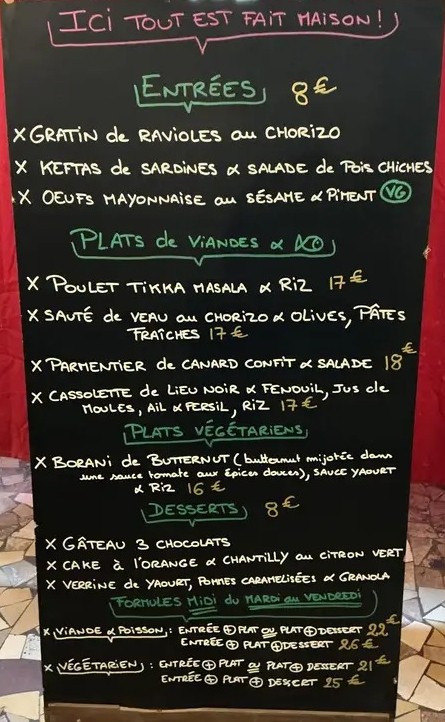 ICI TOUT EST FAIT MAISON!
ENTRÉES 8€
X GRATIN de RAVIOLES au CHORIZO
X KEFTAS de SARDINES & SALADE de POIS CHICHES
X OEUFS MAYONNAISE au SÉSAME & PIMENT VG
PLATS de VIANDES &
X POULET TIKKA MASALA & RIZ 17€
X SAUTÉ de VEAU au CHORIZO & OLIVES, PÂTES
FRAÎCHES 17€
X PARMENTIER de CANARD CONFIT & SALADE 18€
X CASSOLETTE de LIEU NOIR & FENOUIL, JUS de
MOULES, AIL & PERSIL, RIZ 17€
PLATS VÉGÉTARIENS
X BORANI de BUTTERNUT (butternut mijotée dans
une sauce tomate aux épices douces), SAUCE YAOURT
& RIZ 16€
DESSERTS 8€
X GÂTEAU 3 CHOCOLATS
X CAKE à l'ORANGE & CHANTILLY au CITRON VERT
X VERRINE de YAOURT, POMMES CARAMELISÉES & GRANOLA
FORMULES MIDI du MARDI au VENDREDI
X VIANDE & POISSON : ENTRÉE + PLAT ou PLAT + DESSERT 22€
ENTRÉE + PLAT + DESSERT 26€
X VÉGÉTARIEN : ENTRÉE + PLAT ou PLAT + DESSERT 21€
ENTRÉE + PLAT + DESSERT 25€